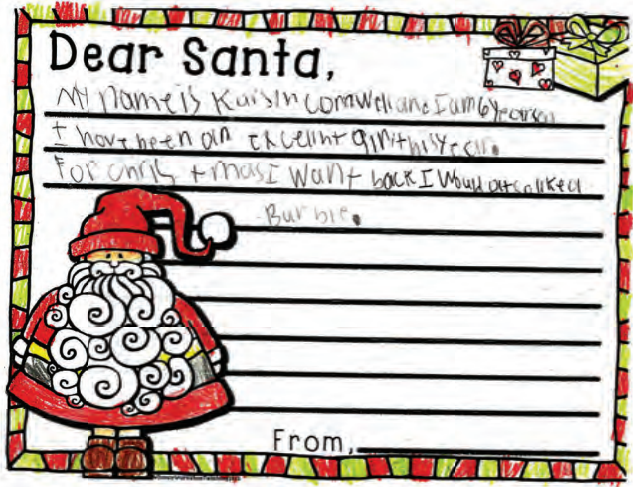 Dear Santa,
My name is Kaisin Cornwell and I am 6 years old
I have been an excelint girl this year.
For chris tmas I want back I would also liked
Barbie.
From,